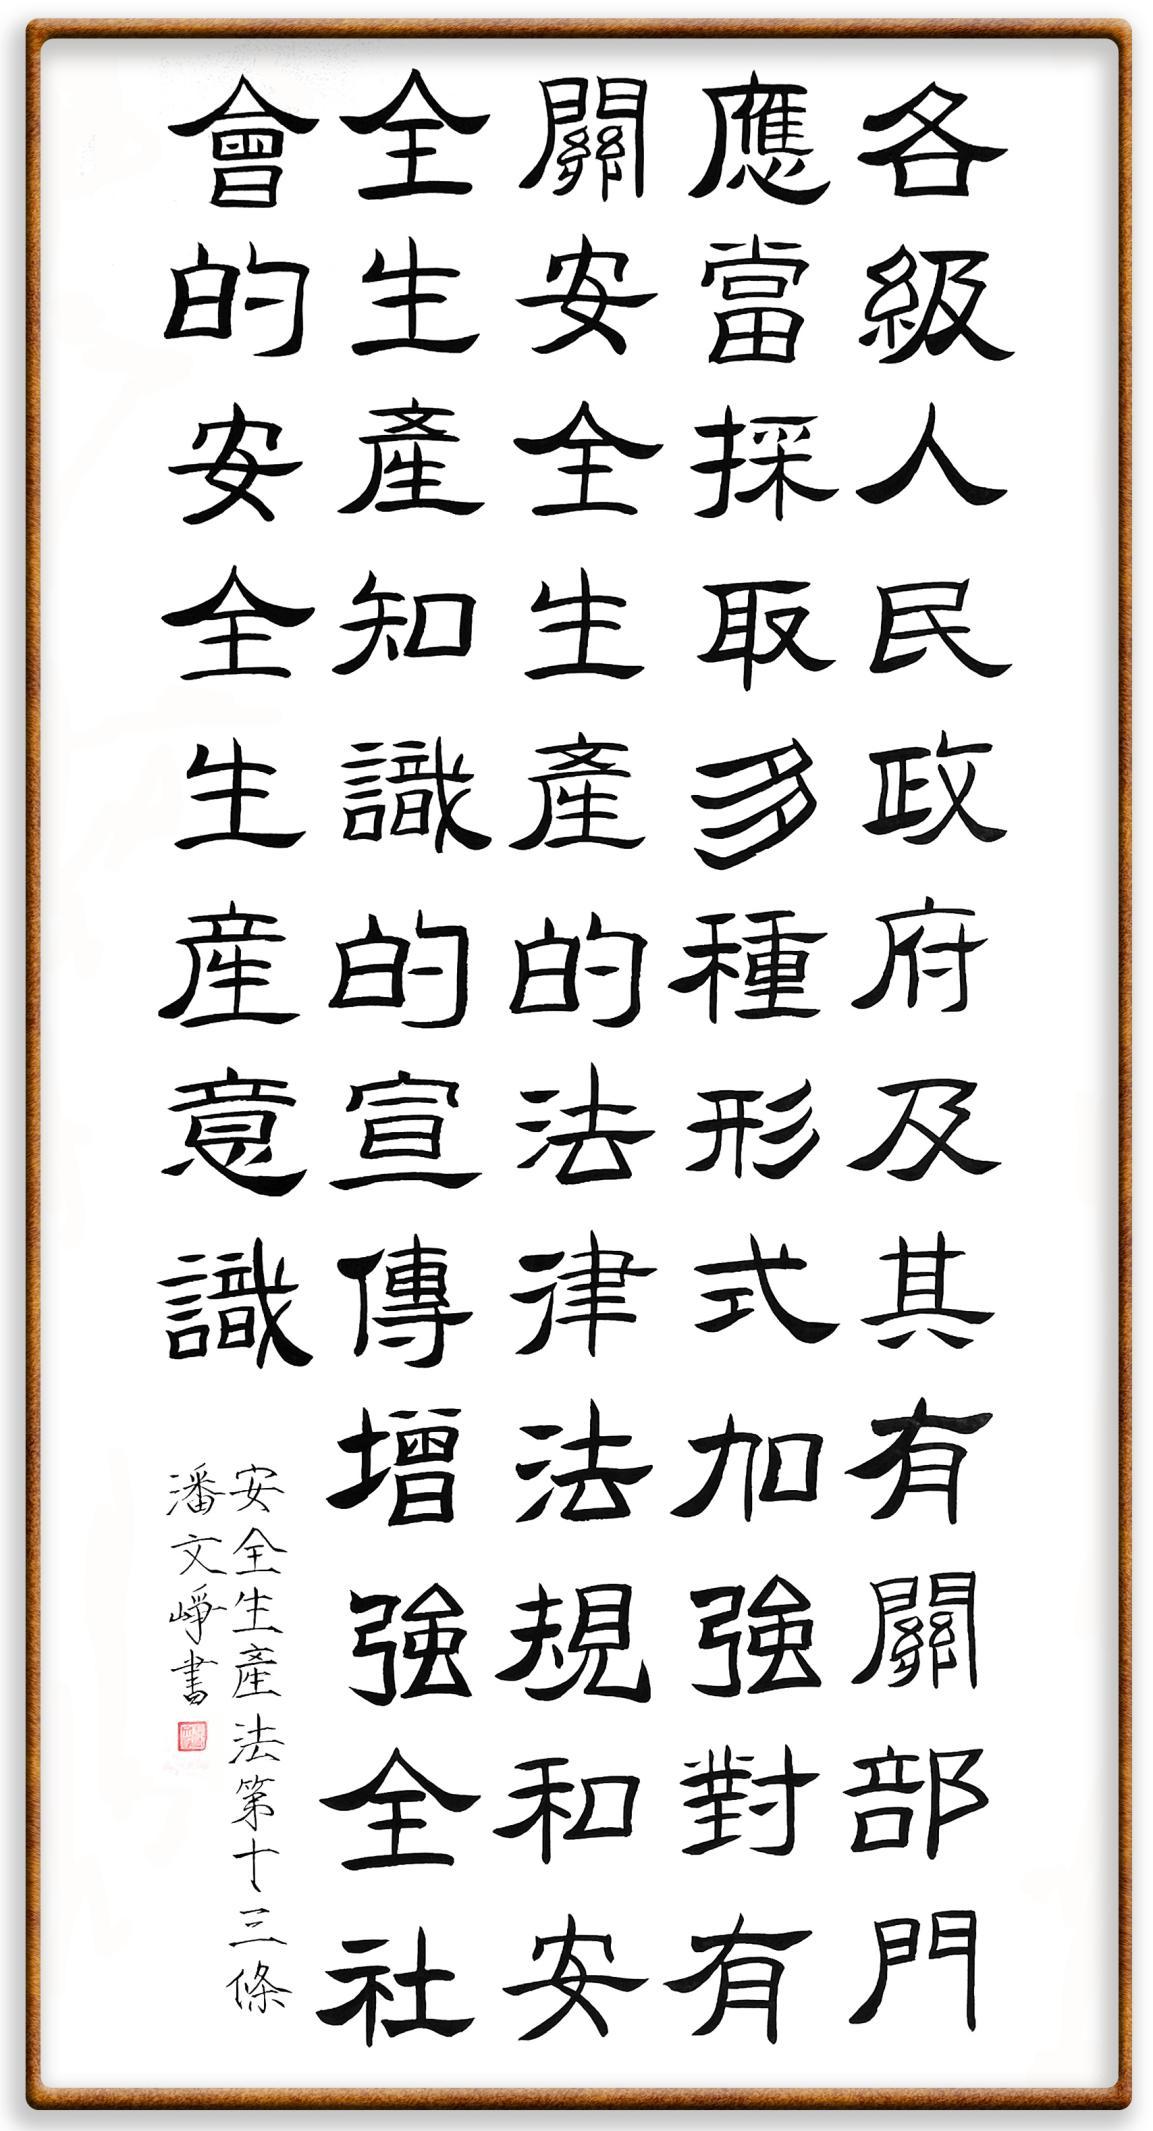 各級人民政府及其有關部門
應當採取多種形式加強對有
關安全生產的法律法規和安
全生產知識的宣傳增強全社
會的安全生産意識
安全生產法第十三條
潘文崢書